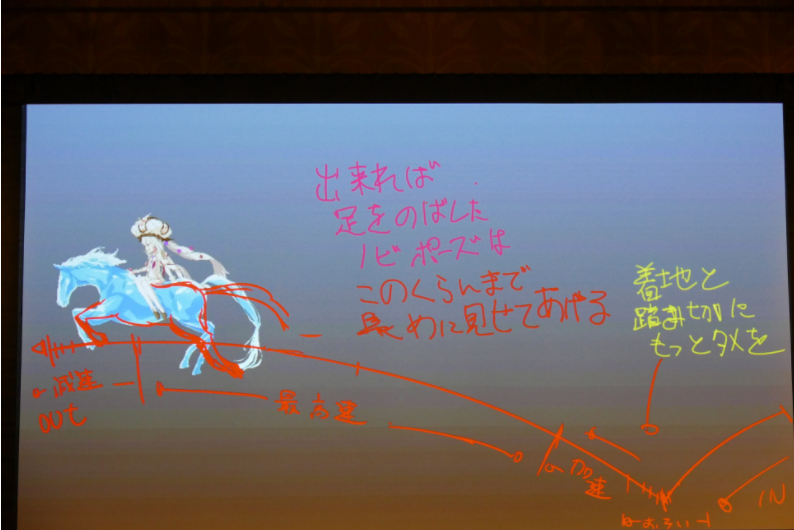 出来れば
足をのばした
ノビポーズは
このくらいまで
長めに見せてあげる
着地と
踏み切りに
もっとタメを
減速
OUT
最高速
加速
IN